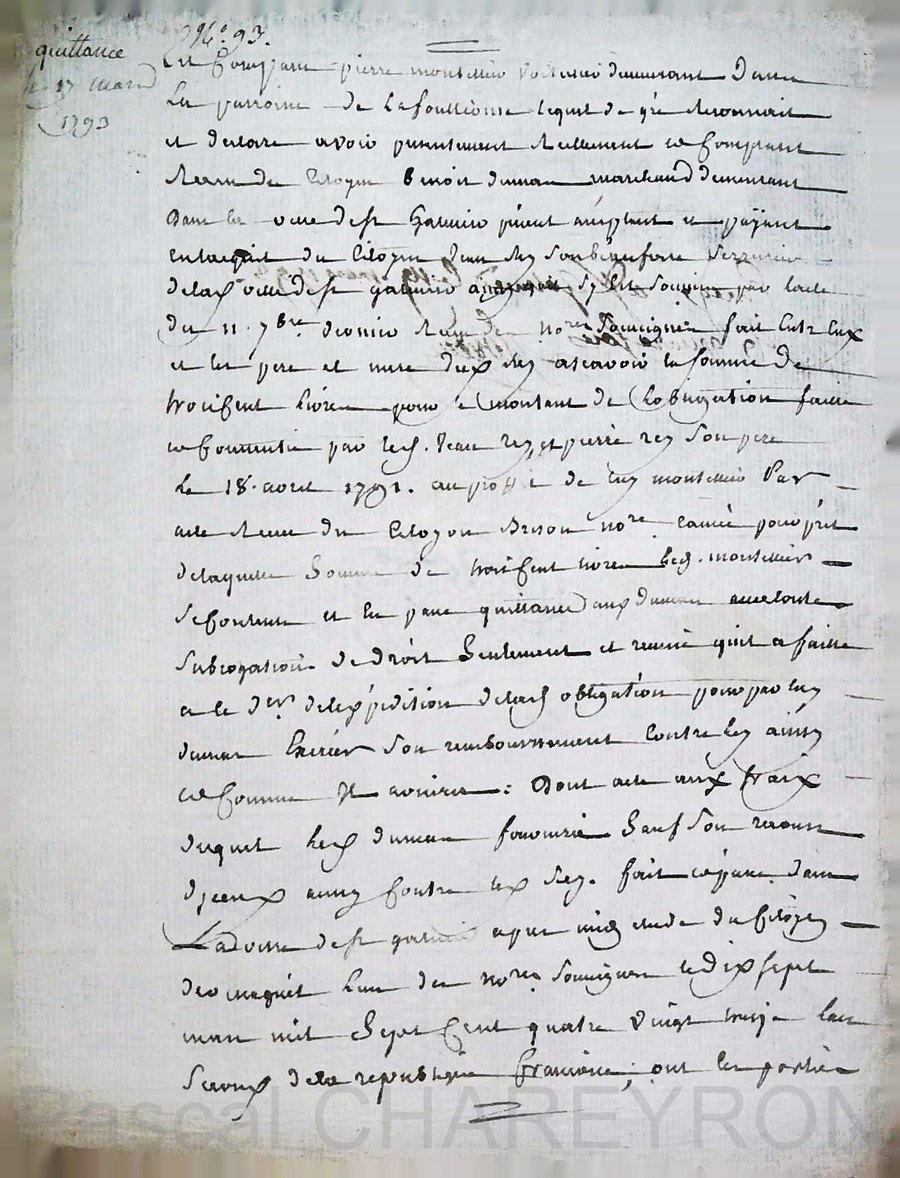 quittance
17 mars
1793
N.o 93.
Est Comparu pierre montellier voiturier demeurant dans
La parroisse de Lafouillouse lequel de gré Reconnait
et declare avoir presentement Reellement et Comptant
Recu du Citoyen Benoit dumas marchand demeurant
Dans la ville de st Galmier présent acceptant et payant
en lacquit du Citoyen Jean Rey serrurier
de lad ville de st galmier par lacte
du 11. 7bre dernier Recu des nores Soussignés fait Entre Eux
et les pere et mere dud Rey ascavoir la somme de
trois Cent Livres pour le montant de Lobligation faitte
et Consentie par led. Jean rey, et pierre rey Son pere
Le 18. avril 1791. au proffit de luy montellier Par
acte Recu du Citoyen Brison nore pour prêt
de laquelle Somme de trois Cent livres led. montellier
se Contente et en passe quittance aud dumas avec toute
Subrogation de droit Seulement et remise quil a faitte
de lexpédition de lad obligation pour par luy
dumas Exercer Son remboursement Contre les ainsy
et Comme Il avisera : Dont acte aux fraix
duquel led dumas fournira Sauf Son recours
diceux aussy Contre les Rey. fait et passé dans
La ville de st galmier apres midy etude du Citoyen
Lun des nores Soussignés le Dix sept
mars mil Sept Cent quatre Vingt treize Lan
Second de la republique francaise, ont les parties
Pascal CHAREYRON